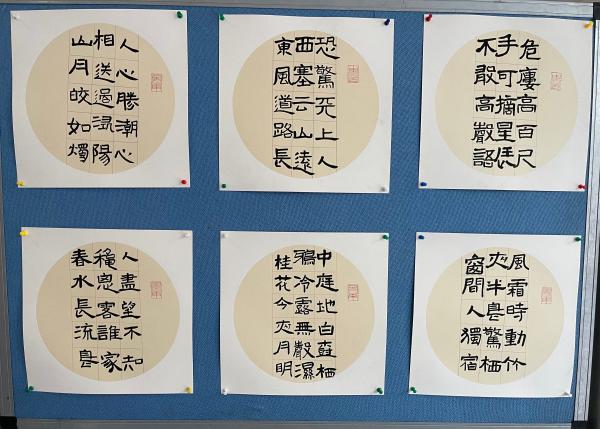 危廔高百尺
手可摘星辰
不敢高聲語
恐驚天上人
西塞云山遠
東風道路長
人心勝潮心
相送過潯陽
山月皎如燭
風霜時動竹
夜半鳥驚栖
窗間人獨宿
中庭地白尌栖
鴉冷露無聲濕
桂花今夜月明
人盡望不知
穐恖落誰家
春水長流鳥